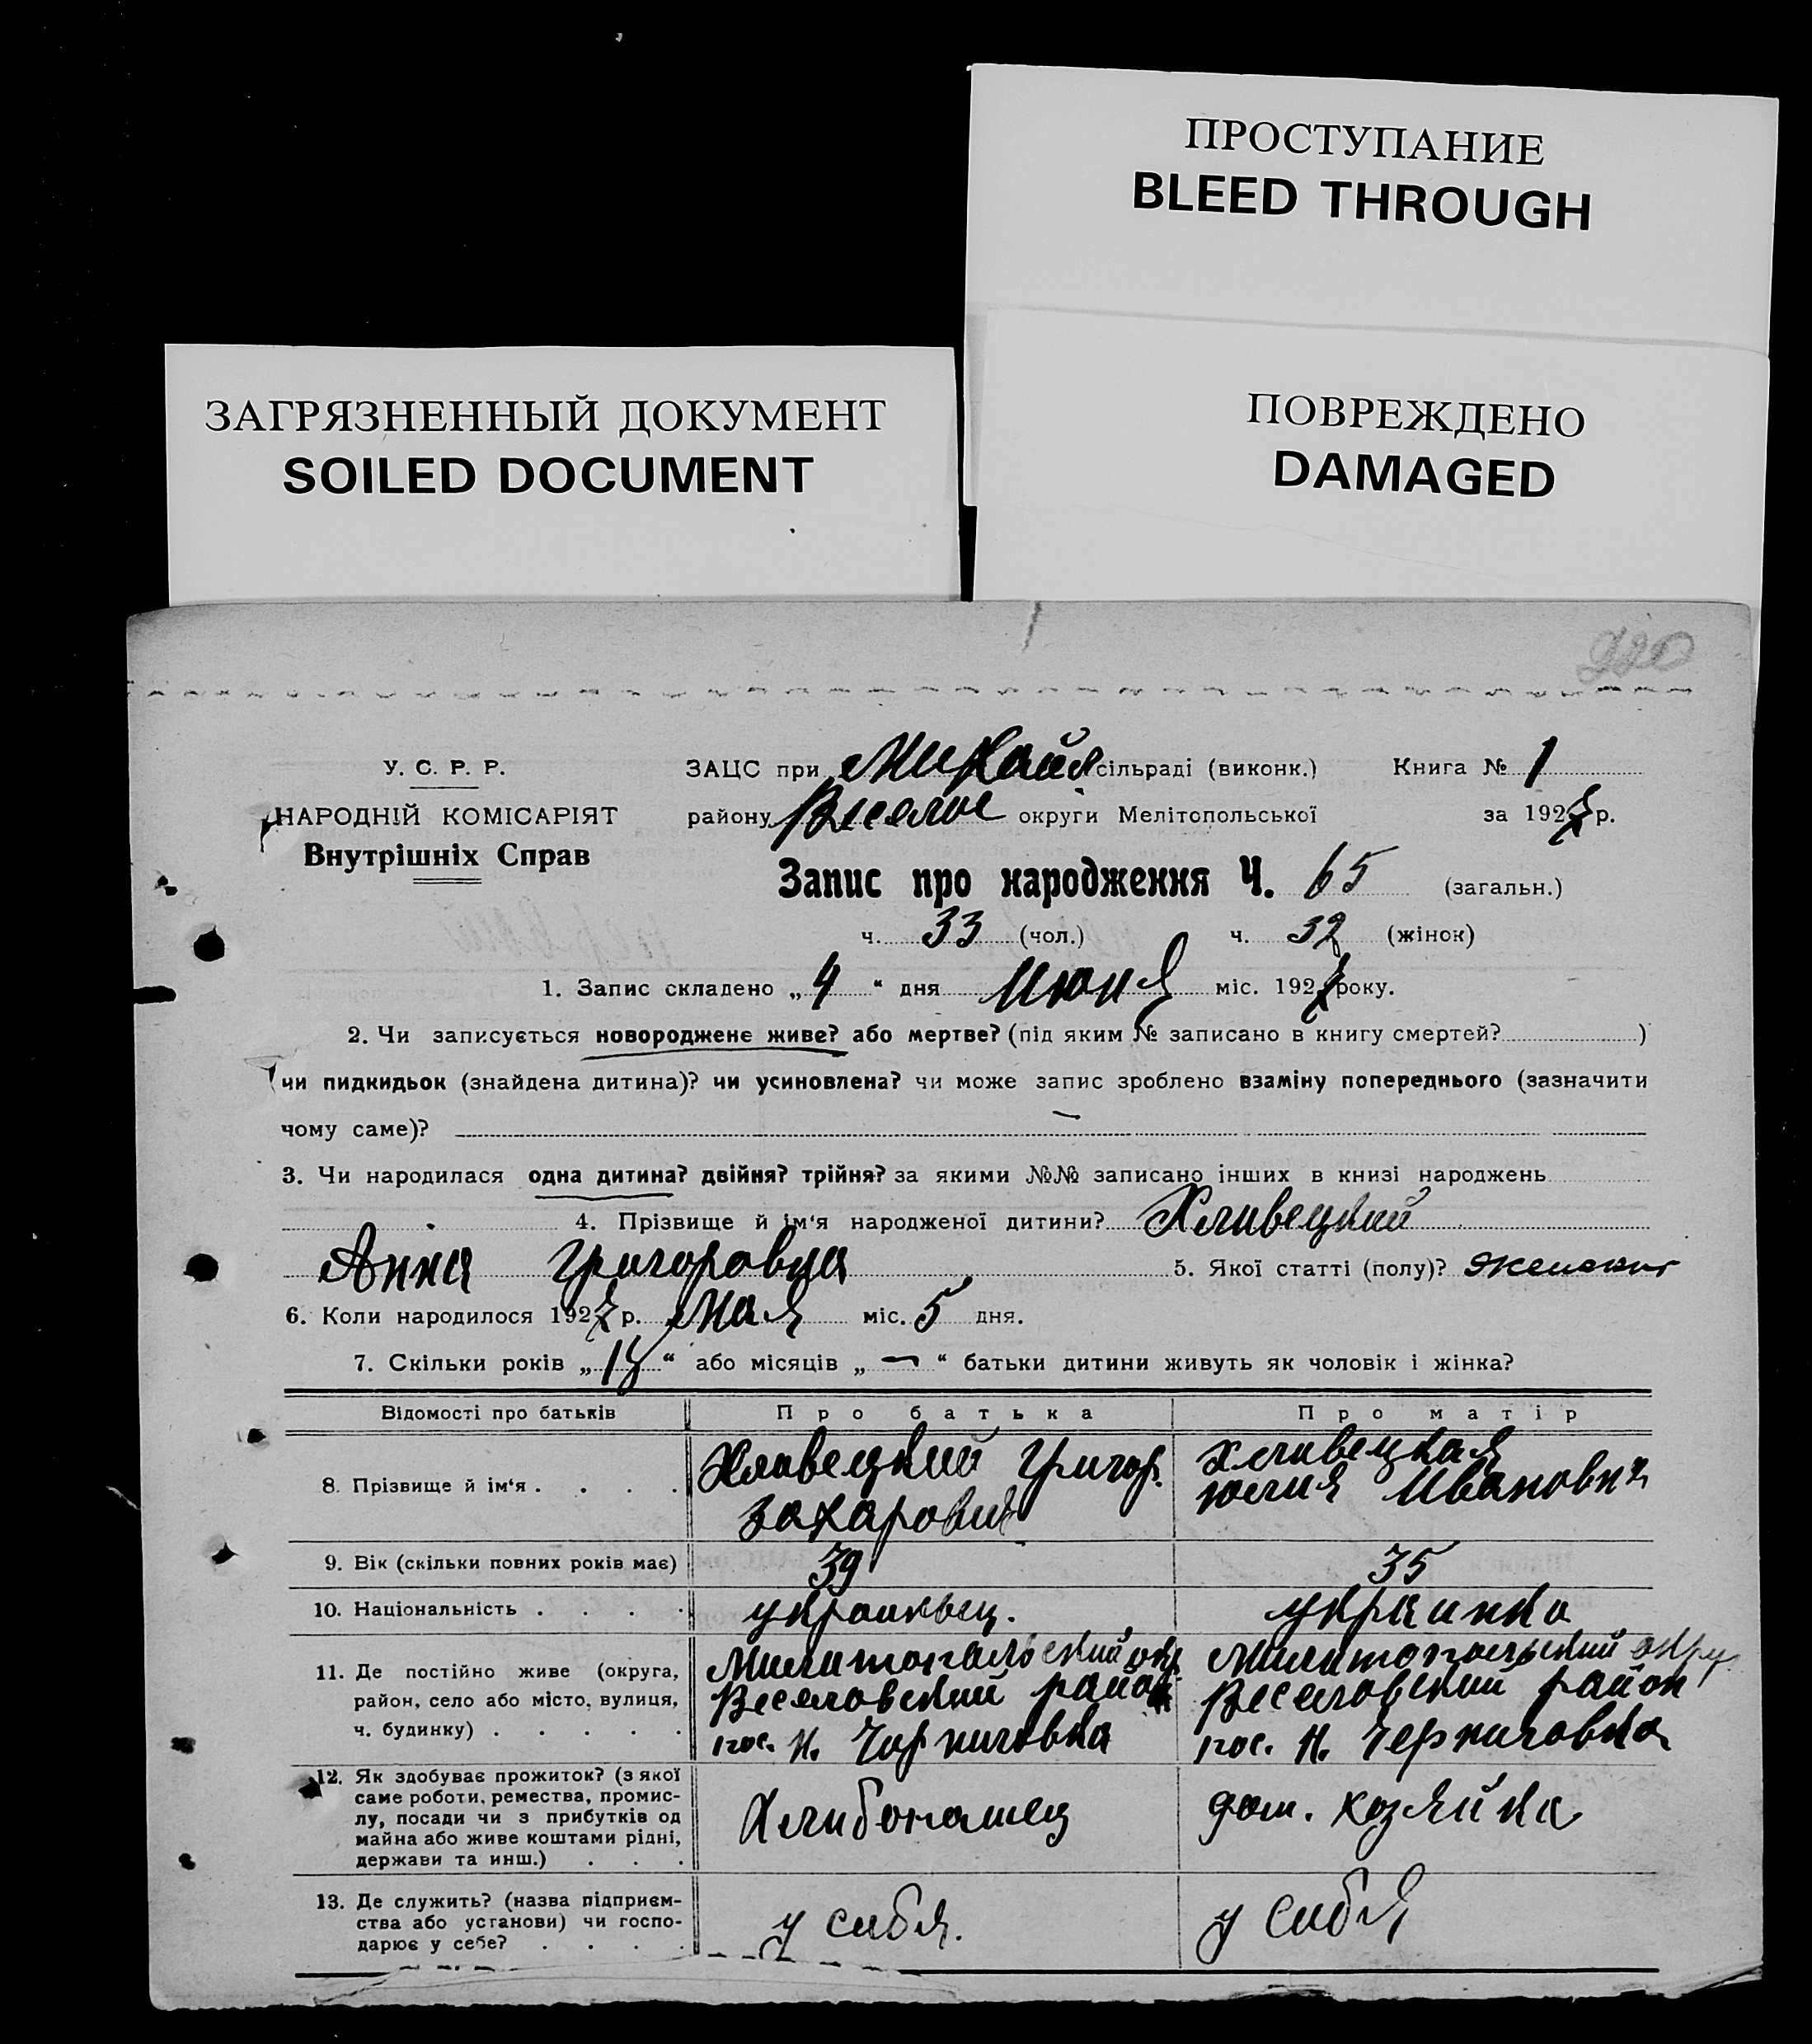 ПРОСТУПАНИЕ
BLEED THROUGH
ЗАГРЯЗНЕННЫЙ ДОКУМЕНТ
SOILED DOCUMENT
ПОВРЕЖДЕНО
DAMAGED
220
У. С. Р. Р.
НАРОДНІЙ КОМІСАРІЯТ
Внутрішніх Справ
ЗАЦС при Михайл сільраді (виконк.) Книга № 1
району Веселое округи Мелітопольської за 1927 р.
Запис про народження Ч. 65 (загальн.)
ч. 33 (чол.) ч. 32 (жінок)
1. Запис складено „ 4 “ дня Июня міс. 1927 року.
2. Чи записується новороджене живе? або мертве? (під яким № записано в книгу смертей? )
чи пидкидьок (знайдена дитина)? чи усиновлена? чи може запис зроблено взаміну попереднього (зазначити
чому саме)? —
3. Чи народилася одна дитина? двійня? трійня? за якими №№ записано інших в книзі народжень
4. Прізвище й ім‘я народженої дитини? Хливецкий
Анна Григоровна 5. Якої статті (полу)? женский
6. Коли народилося 1927 р. мая міс. 5 дня.
7. Скільки років „ “ або місяців „ — “ батьки дитини живуть як чоловік і жінка?
Відомості про батьків Про батька Про матір
8. Прізвище й ім‘я . . . . Хливецкий Григор. Захарович
Хливецкая Юлия Ивановна
9. Вік (скільки повних років має) 39 35
10. Національність . . . . украинец. украинка
11. Де постійно живе (округа,
район, село або місто, вулиця,
ч. будинку) . . . . .
Милитопальский окр.
Веселовский район
пос. Н. Чорниговка
Милитопольский окру.
Веселовский район
пос. Н. Черниговка
12. Як здобуває прожиток? (з якої
саме роботи, ремества, промис-
лу, посади чи з прибутків од
майна або живе коштами рідні,
держави та инш.) . . .
Хлибопашец
дом. хозяйка
13. Де служить? (назва підприєм-
ства або установи) чи госпо-
дарює у себе? . . . .
у сибя.
у сибя